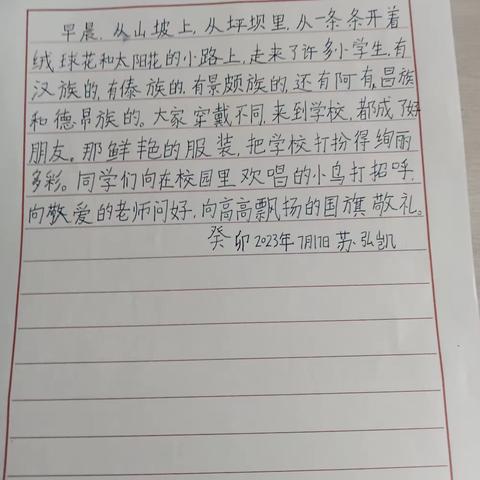 早晨,从山坡上,从坪坝里,从一条条开着
绒球花和太阳花的小路上,走来了许多小学生,有
汉族的,有傣族的,有景颇族的,还有阿有,昌族
和德昂族的。大家穿戴不同,来到学校,都成了好
朋友。那鲜艳的服装,把学校打扮得绚丽
多彩。同学们向在校园里欢唱的小鸟打招呼,
向敬爱的老师问好,向高高飘扬的国旗敬礼。
癸卯2023年7月17日苏弘凯